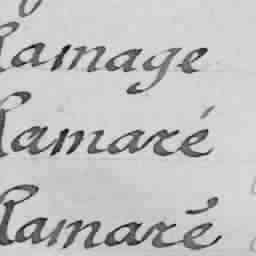 Ramage
Ramaré
Ramaré